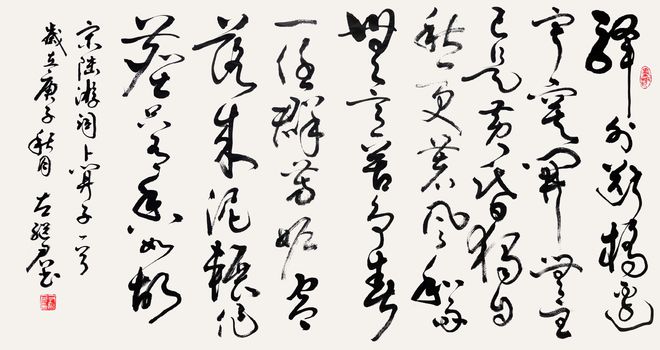 驛外斷橋邊
寂寞開無主
已是黃昏獨自
愁更著風和雨
無意苦爭春
一任群芳妒零
落成泥碾作
塵只有香如故
宋陸游詞卜算子一首
歲在庚子秋月 左继君书